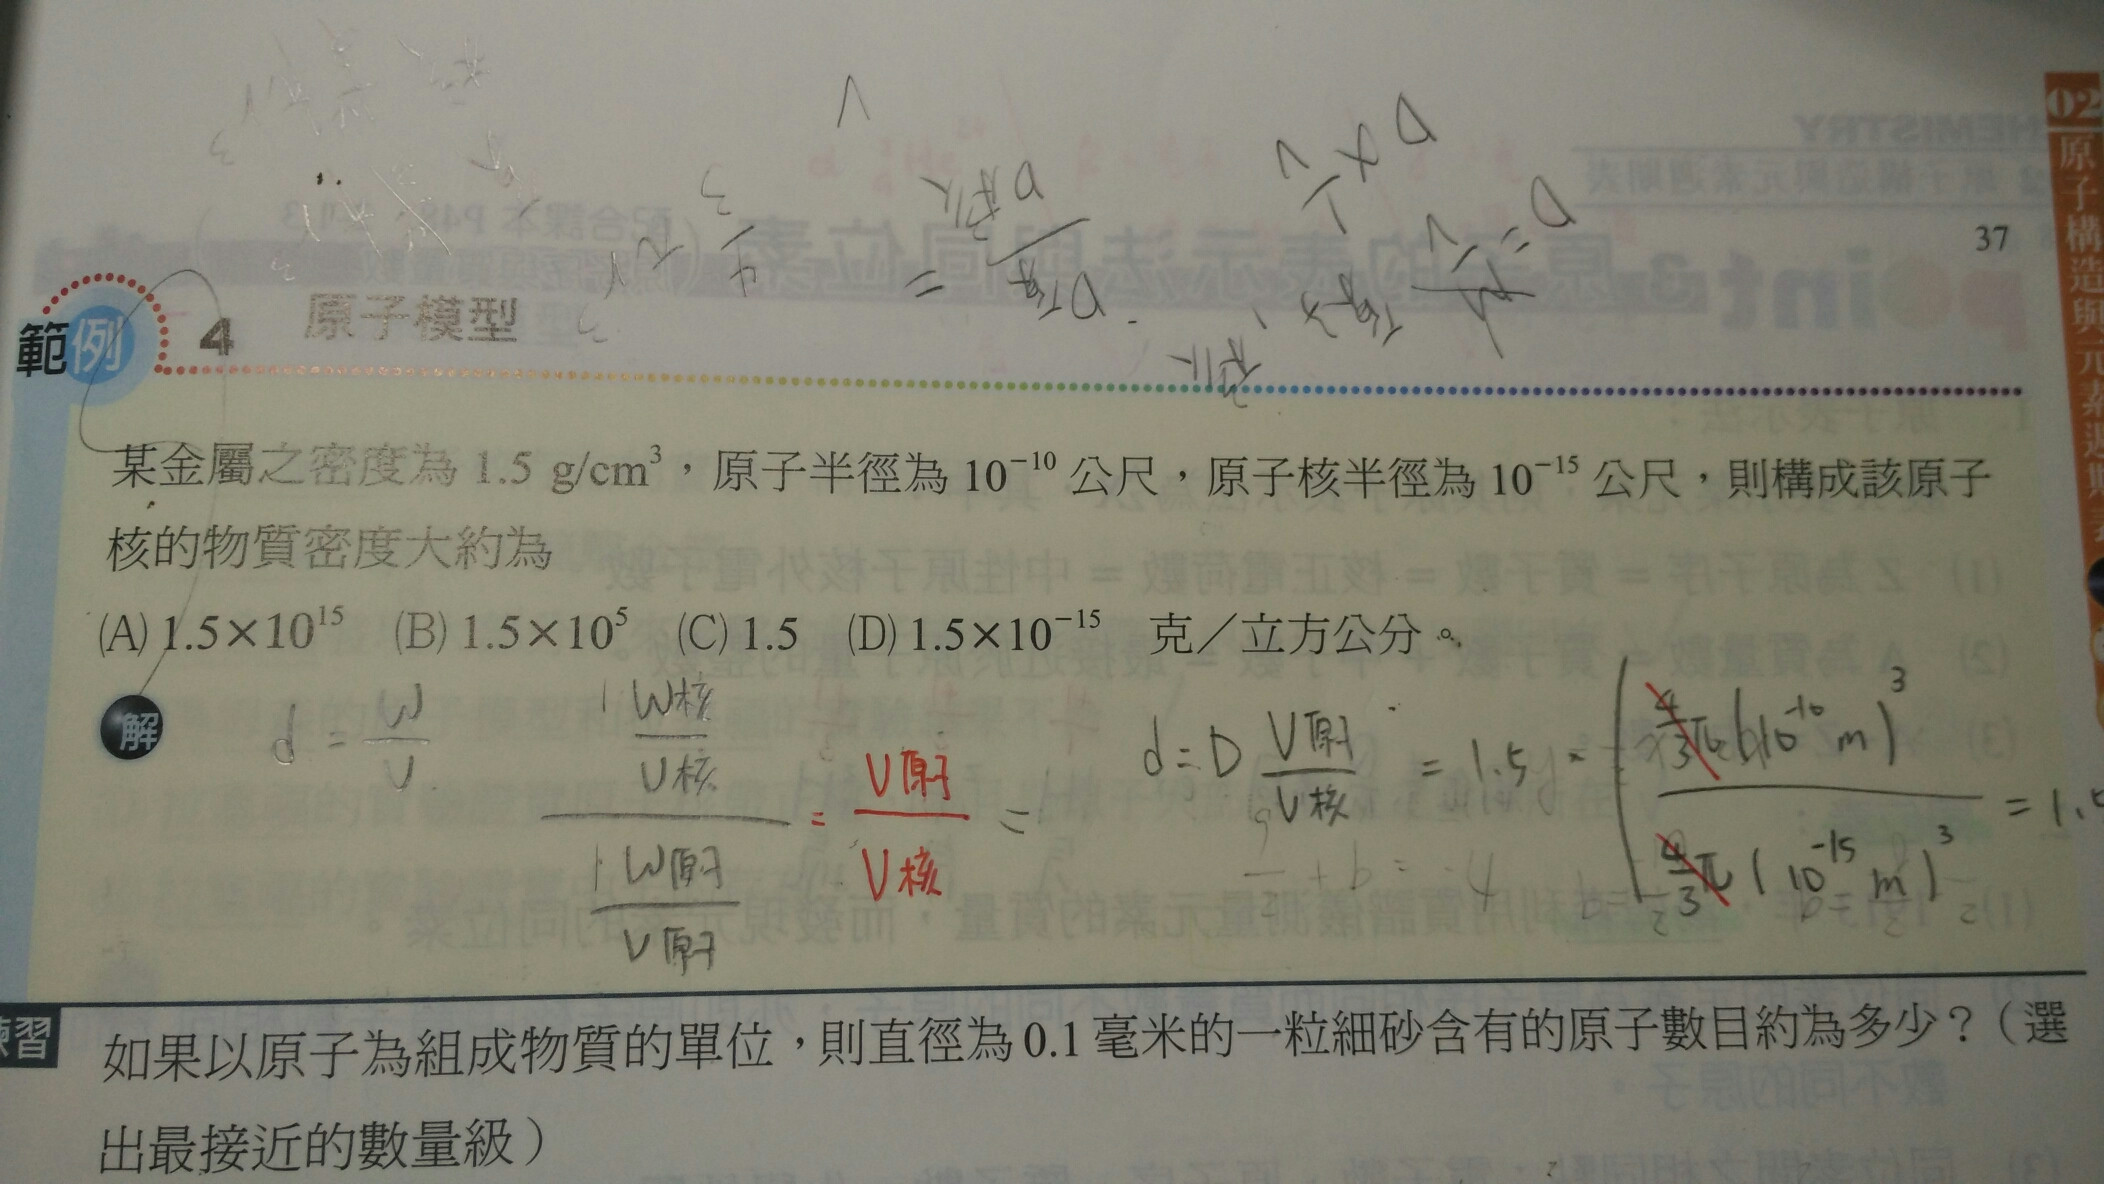 02 原子構造與元素週期表
37
範例 4 原子模型
某金屬之密度為 1.5 g/cm³，原子半徑為 10⁻¹⁰ 公尺，原子核半徑為 10⁻¹⁵ 公尺，則構成該原子
核的物質密度大約為
(A) 1.5×10¹⁵ (B) 1.5×10⁵ (C) 1.5 (D) 1.5×10⁻¹⁵ 克／立方公分。
解
d = W/V
(W核/V核)/(W原子/V原子) = V原子/V核 =
d = D V原子/V核 = 1.5 × (4/3 π(10⁻¹⁰ m)³ / 4/3 π(10⁻¹⁵ m)³ = 1.5
練習 如果以原子為組成物質的單位，則直徑為 0.1 毫米的一粒細砂含有的原子數目約為多少？（選
出最接近的數量級）